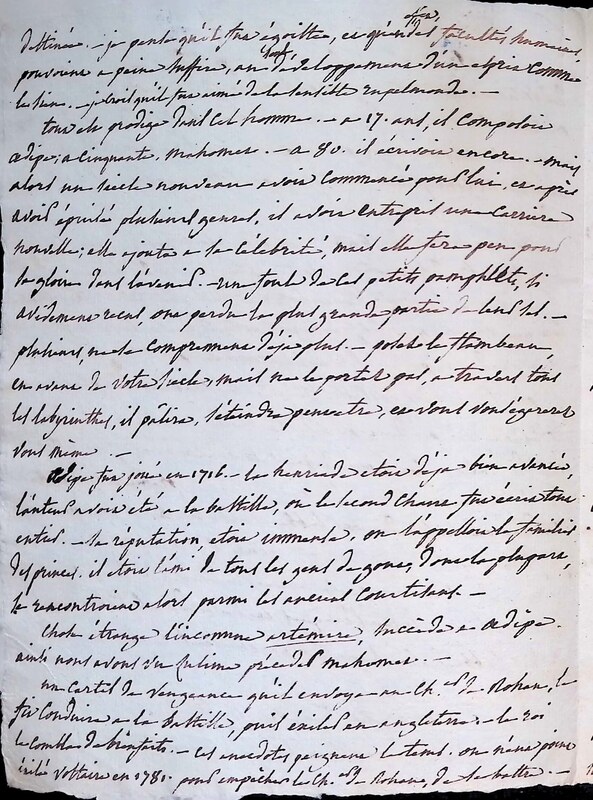 destinée. - je pense qu'il fut égoïste, et qu'en des facultés humaines,
pouvoient a peine suffire, au seul développement d'un esprit comme
le sien. - je crois qu'il fut aimé de la sensible rupelmonde. -
tout est prodige dans cet homme. - a 17. ans, il composoit
œdipe; a cinquante, mahomet. - a 80. il écrivoit encore. - mais
alors un siècle nouveau avoit commencé pour lui, et après
avoir épuisé plusieurs genres, il avoit entrepris une carriere
nouvelle; elle ajouta a sa célébrité, mais elle fera peu pour
sa gloire dans l'avenir. - une foule de ces petits pamphlets, si
avidement reçus, ont perdu la plus grande partie de leur sel. -
plusieurs, ne se comprennent déjà plus. - portez le flambeau
en avant de votre siècle, mais ne le portez pas, a travers tous
les labyrinthes, il pâlira, s'éteindra peut etre, et vous vous égarerez
vous même. -
œdipe fut joué en 1716. - la henriade etoit déjà bien avancée,
l'auteur avoit été a la bastille, où le second chant fut écrit tout
entier. - sa réputation, etoit immense, on l'appelloit le familier
des princes. il etoit l'ami de tous les gens de gout, dont la plupart,
se rencontroient alors parmi les anciens courtisans. -
chose étrange l'inconnue artémire, succéda a œdipe.
ainsi nous avons vu sulima précéder mahomet. -
un cartel de vengeance qu'il envoya au ch.er de Rohan, le
fit conduire a la bastille, puis exiler en angleterre. - le roi
le combla de bienfaits. - ces anecdotes peignent le tems. on n'eut point
exilé voltaire en 1781. pour empêcher le ch.er de Rohan, de se battre. -